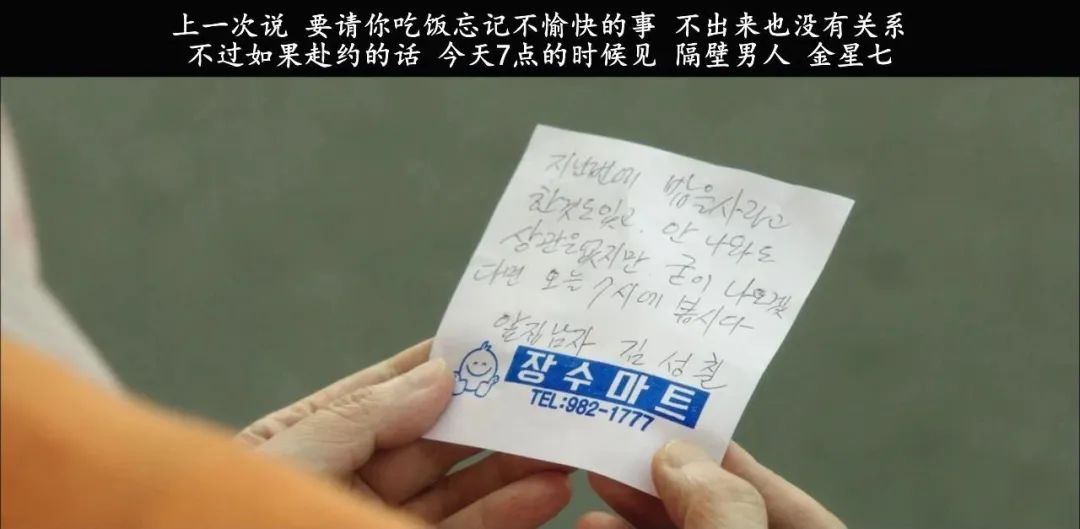 上一次说 要请你吃饭忘记不愉快的事 不出来也没有关系
不过如果赴约的话 今天7点的时候见 隔壁男人 金星七
지난번에 밥을사라고
한것도있고. 안 나와도
상관은없지만. 굳이 나오겠
다면 오늘 7시에 봅시다
앞집남자 김성칠
장수마트
TEL:982-1777